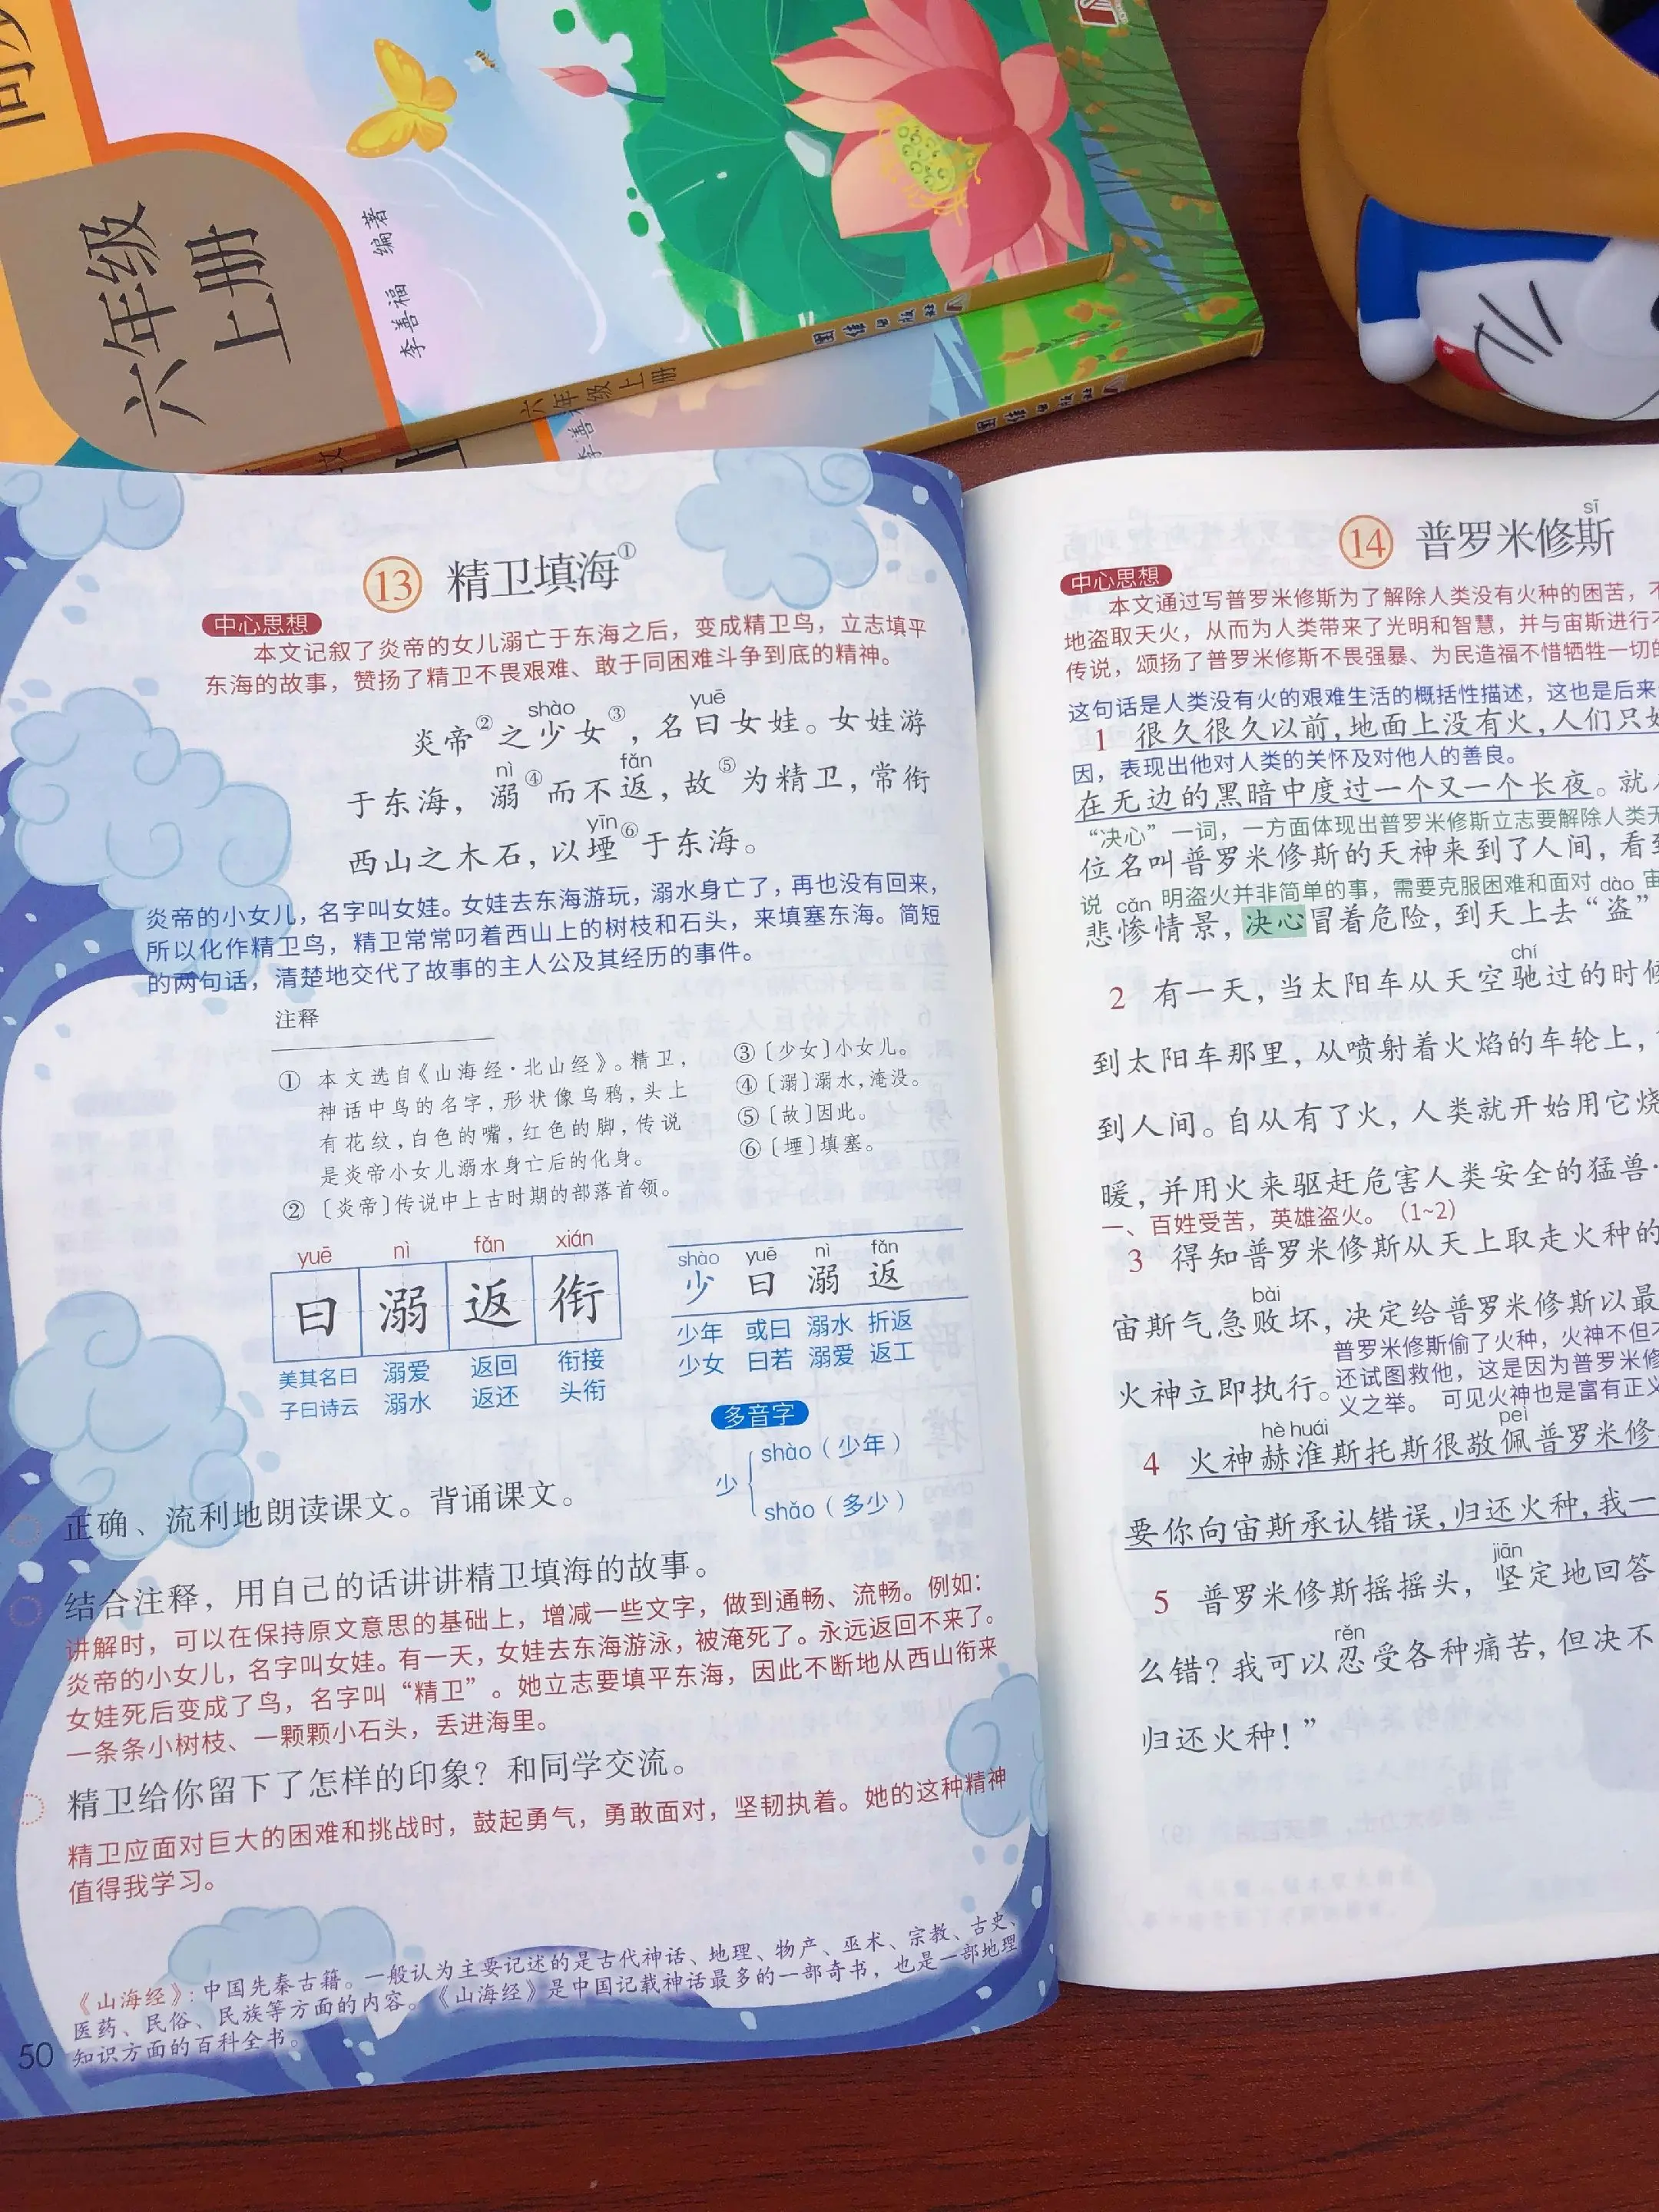 六年级
上册
李善福 编著
六年级上册
13 精卫填海①
中心思想
本文记叙了炎帝的女儿溺亡于东海之后，变成精卫鸟，立志填平
东海的故事，赞扬了精卫不畏艰难、敢于同困难斗争到底的精神。
shào yuē
炎帝②之少女③，名曰女娃。女娃游
nì fǎn
于东海，溺④而不返，故⑤为精卫，常衔
yīn
西山之木石，以堙⑥于东海。
炎帝的小女儿，名字叫女娃。女娃去东海游玩，溺水身亡了，再也没有回来，
所以化作精卫鸟，精卫常常叼着西山上的树枝和石头，来填塞东海。简短
的两句话，清楚地交代了故事的主人公及其经历的事件。
注释
① 本文选自《山海经·北山经》。精卫，
神话中鸟的名字，形状像乌鸦，头上
有花纹，白色的嘴，红色的脚，传说
是炎帝小女儿溺水身亡后的化身。
② 〔炎帝〕传说中上古时期的部落首领。
③〔少女〕小女儿。
④〔溺〕溺水，淹没。
⑤〔故〕因此。
⑥〔堙〕填塞。
yuē nì fǎn xián
曰 溺 返 衔
美其名曰 溺爱 返回 衔接
子曰诗云 溺水 返还 头衔
shào yuē nì fǎn
少 曰 溺 返
少年 或曰 溺水 折返
少女 曰若 溺爱 返工
多音字
少
shào（少年）
shǎo（多少）
正确、流利地朗读课文。背诵课文。
结合注释，用自己的话讲讲精卫填海的故事。
讲解时，可以在保持原文意思的基础上，增减一些文字，做到通畅、流畅。例如：
炎帝的小女儿，名字叫女娃。有一天，女娃去东海游泳，被淹死了。永远返回不来了。
女娃死后变成了鸟，名字叫“精卫”。她立志要填平东海，因此不断地从西山衔来
一条条小树枝、一颗颗小石头，丢进海里。
精卫给你留下了怎样的印象？和同学交流。
精卫应面对巨大的困难和挑战时，鼓起勇气，勇敢面对，坚韧执着。她的这种精神
值得我学习。
《山海经》：中国先秦古籍。一般认为主要记述的是古代神话、地理、物产、巫术、宗教、古史、
医药、民俗、民族等方面的内容。《山海经》是中国记载神话最多的一部奇书，也是一部地理
知识方面的百科全书。
50
sī
14 普罗米修斯
中心思想
本文通过写普罗米修斯为了解除人类没有火种的困苦，不
地盗取天火，从而为人类带来了光明和智慧，并与宙斯进行不
传说，颂扬了普罗米修斯不畏强暴、为民造福不惜牺牲一切的
这句话是人类没有火的艰难生活的概括性描述，这也是后来
1 很久很久以前，地面上没有火，人们只好
因，表现出他对人类的关怀及对他人的善良。
在无边的黑暗中度过一个又一个长夜。就
“决心”一词，一方面体现出普罗米修斯立志要解除人类无
位名叫普罗米修斯的天神来到了人间，看到
说 cǎn 明盗火并非简单的事，需要克服困难和面对 dào 宙
悲惨情景，决心冒着危险，到天上去“盗”
chí
2 有一天，当太阳车从天空驰过的时候
到太阳车那里，从喷射着火焰的车轮上，
到人间。自从有了火，人类就开始用它烧
暖，并用火来驱赶危害人类安全的猛兽
一、百姓受苦，英雄盗火。（1~2）
3 得知普罗米修斯从天上取走火种的
bài
宙斯气急败坏，决定给普罗米修斯以最
普罗米修斯偷了火种，火神不但不
火神立即执行。还试图救他，这是因为普罗米修
义之举。 可见火神也是富有正义
hè huái pèi
4 火神赫淮斯托斯很敬佩普罗米修
要你向宙斯承认错误，归还火种，我一
jiān
5 普罗米修斯摇摇头，坚定地回答
rěn
么错？我可以忍受各种痛苦，但决不
归还火种！”